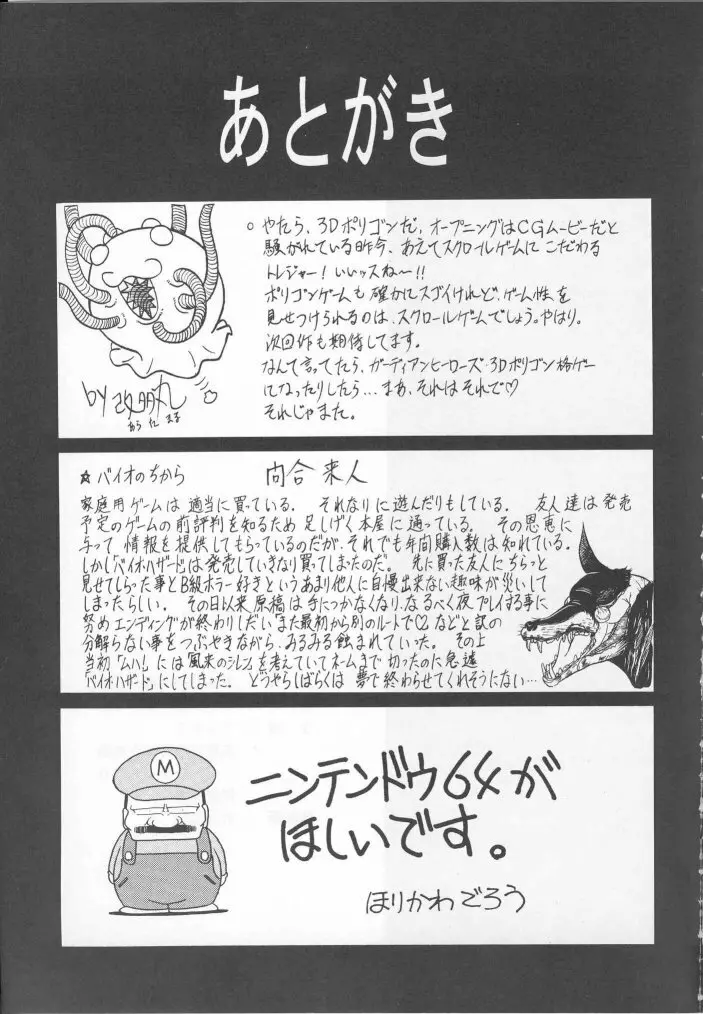 あとがき
○ やたら、3Dポリゴンだ、オープニングはCGムービーだと
騒がれている昨今、あえてスクロールゲームにこだわる
トレジャー！いいッスね〜!!
ポリゴンゲームも確かにスゴイけれど、ゲーム性を
見せつけられるのは、スクロールゲームでしょう。やはり。
次回作も期待してます。
なんて言ってたら、ガーディアンヒーローズ・3Dポリゴン格ゲー
になったりしたら…まあ、それはそれで♡
それじゃまた。
by
☆バイオのちから 向合来人
家庭用ゲームは適当に買っている。それなりに遊んだりもしている。友人達は発売
予定のゲームの前評判を知るため足しげく本屋に通っている。その恩恵に
与って情報を提供してもらっているのだが、それでも年間購入数は知れている。
しかし「バイオハザード」は発売していきなり買ってしまったのだ。先に買った友人にちらっと
見せてしらった事とB級ホラー好きというあまり他人に自慢出来ない趣味が災いして
しまったらしい。その日以来原稿は手につかなくなり、なるべく夜プレイする事に
努めエンディングが終わりしだい「また最初から別のルートで♡」などと訳の
分解らない事をつぶやきながら、みるみる蝕まれていった。その上
当初「ムハ！」には「風来のシレン」を考えていてネームまで切ったのに急遽
「バイオハザード」にしてしまった。どうやらしばらくは夢で終わらせてくれそうにない…
M
ニンテンドウ64が
ほしいです。
ほりかわごろう